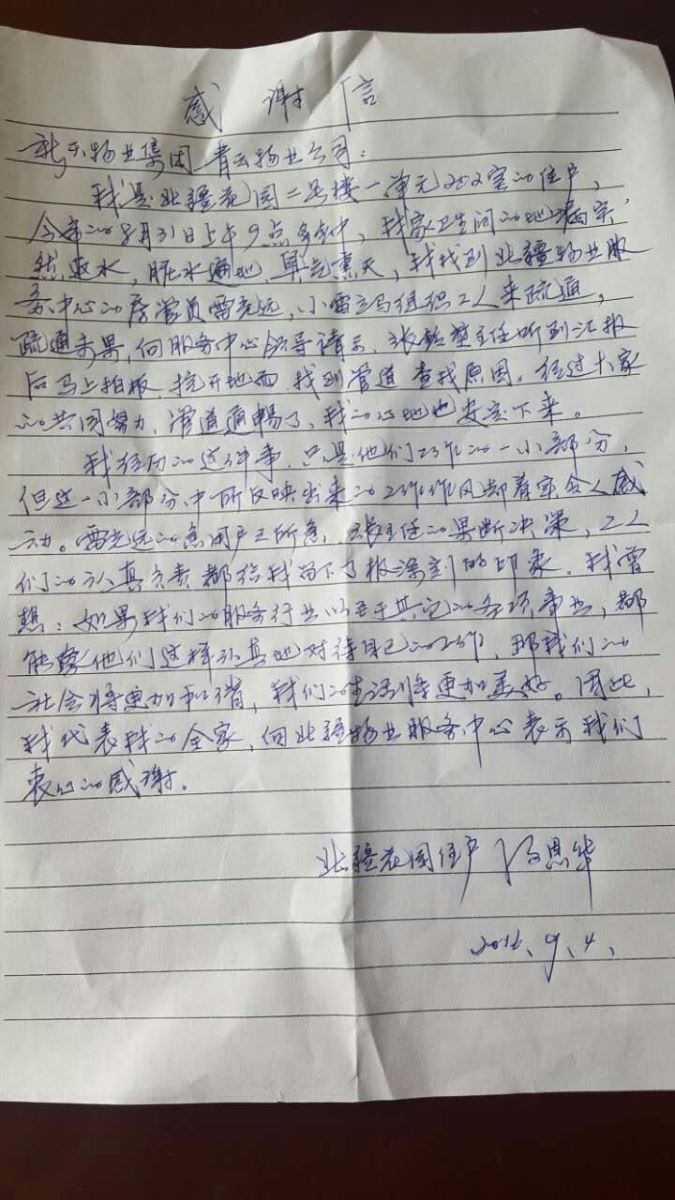 感谢信
新天物业集团青云物业公司:
我是北疆花园二号楼一单元252室的住户,
今年的8月31日上午9点多钟,我家卫生间的地漏突
然返水,脏水遍地,臭气熏天,我找到北疆物业服
务中心的房管员雷克远,小雷立马组织工人来疏通,
疏通未果,向服务中心领导请示,张主任听到汇报
后马上拍板,挖开地面,找到管道,查找原因。经过大家
的共同努力,管道通畅了,我的心地也安定下来。
我经历的这件事,只是他们工作的一小部分,
但这一小部分中所反映出来的工作作风却着实令人感
动。雷克远的急用户之所急,张主任的果断决策,工人
们的认真负责都给我留下了极深刻的印象。我曾
想:如果我们的服务行业以至于其它的各项事业,都
能像他们这样认真地对待自己的工作,那我们的
社会将更加和谐,我们的生活将更加美好。因此,
我代表我的全家,向北疆物业服务中心表示我们
衷心的感谢。
北疆花园住户 恩华
2016.9.4.